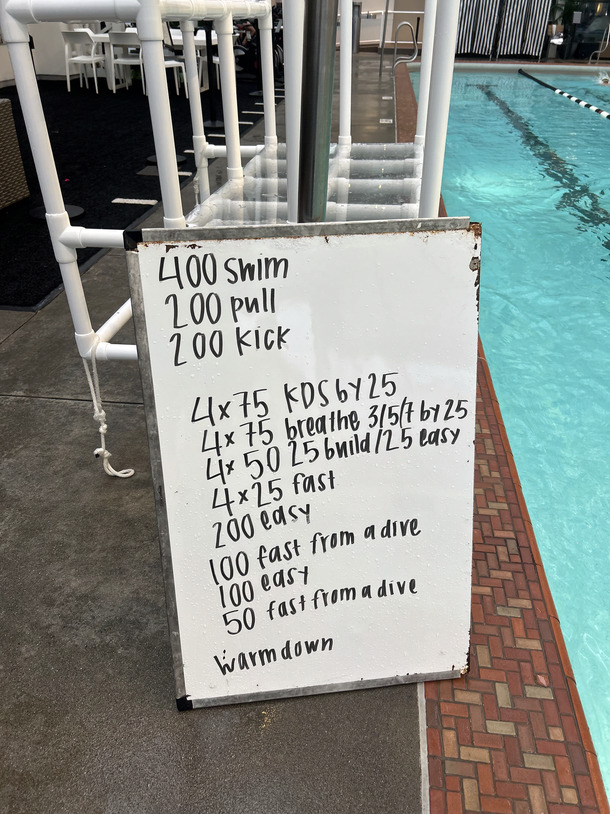 400 swim
200 pull
200 kick
4x75 KDS by 25
4x75 breathe 3/5/7 by 25
4x50 25 build/25 easy
4x25 fast
200 easy
100 fast from a dive
100 easy
50 fast from a dive
Warm down